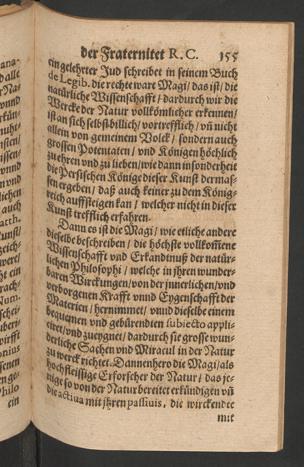 der Fraternitet R. C. 155
ein gelehrter Jud schreibet in seinem Buch
de Legib. die rechte ware Magi / das ist / die
natürliche Wissenschafft / dardurch wir die
Wercke der Natur vollkömlicher erkennen /
ist an sich selbst billich / vortrefflich / vñ nicht
allein von gemeinem Volck / sondern auch
grossen Potentaten / vnd Königen höchlich
zu ehren vnd zu lieben / wie dann in sonderheit
die Persischen Könige dieser Kunst dermas-
sen ergeben / daß auch keiner zu dem König-
reich auffsteigen kan / welcher nicht in dieser
Kunst trefflich erfahren.
Dann es ist die Magi / wie etliche andere
dieselbe beschreiben / die höchste vollkom̃ene
Wissenschafft vnd Erkandtnuß der natür-
lichen Philosophi / welche in jhren wunder-
baren Wirckungen / von der jnnerlichen / vnd
verborgenen Krafft vnnd Eygenschafft der
Materien / hernimmet / wnud dieselbe einem
bequemen vnd gebürendten subiecto appli-
ciret / vnd zueygnet / dardurch sie grosse wun-
derliche Sachen vnd Miracul in der Natur
zu werck richtet. Dannenhero die Magi / als
hochfleissige Erforscher der Natur / das je-
nige so von der Natur bereitet erkündigen vñ
die activa mit jhren passivis, die wirckende
mit